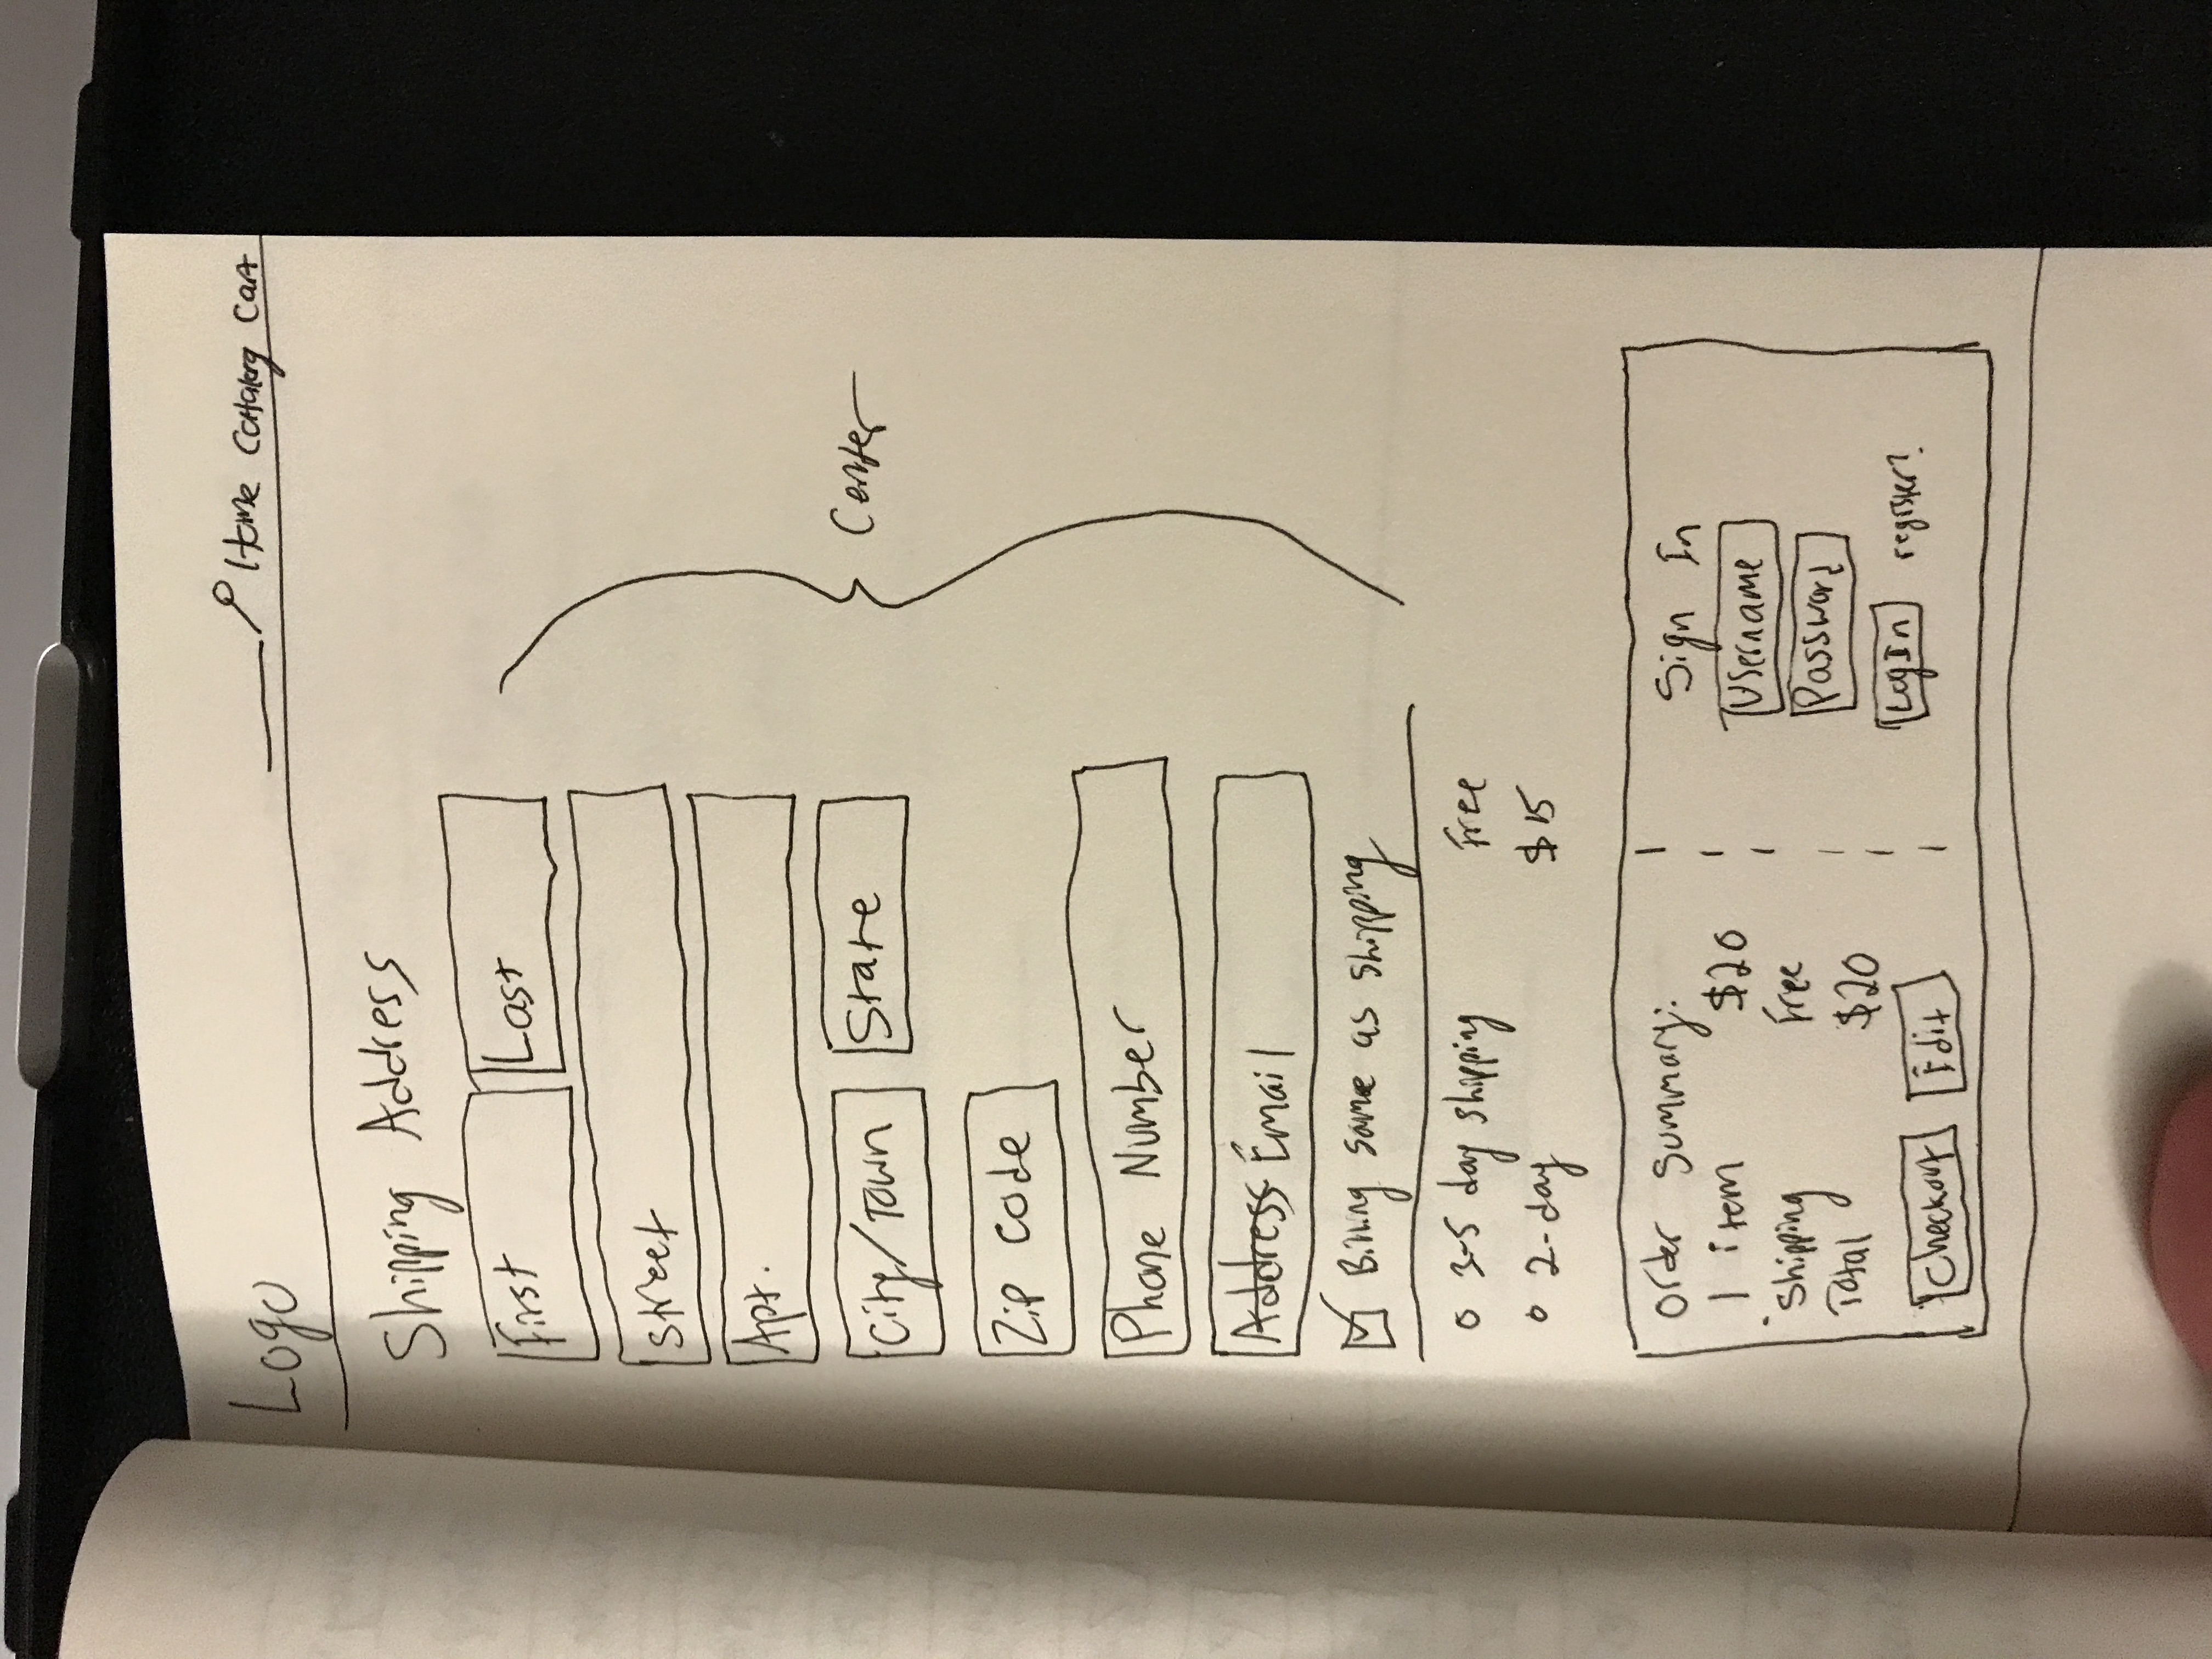 Logo Home Catalog Cart
Shipping Address
First Last
Street
Apt.
City/Town State
Center
Zip Code
Phone Number
Address Email
Billing same as shipping
3-5 day shipping Free
2-day $15
Order Summary:
1 item $20
Shipping Free
Total $20
Checkout Edit
Sign In
Username
Password
LogIn register?